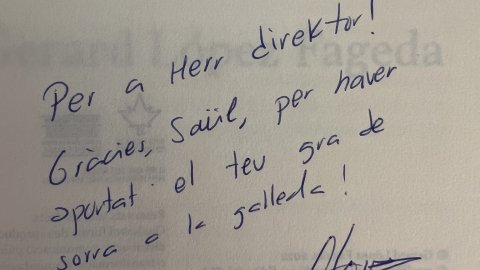 Per a Herr direktor!
Gràcies, Saül, per haver
aportat el teu gra de
sorra a la galleda!